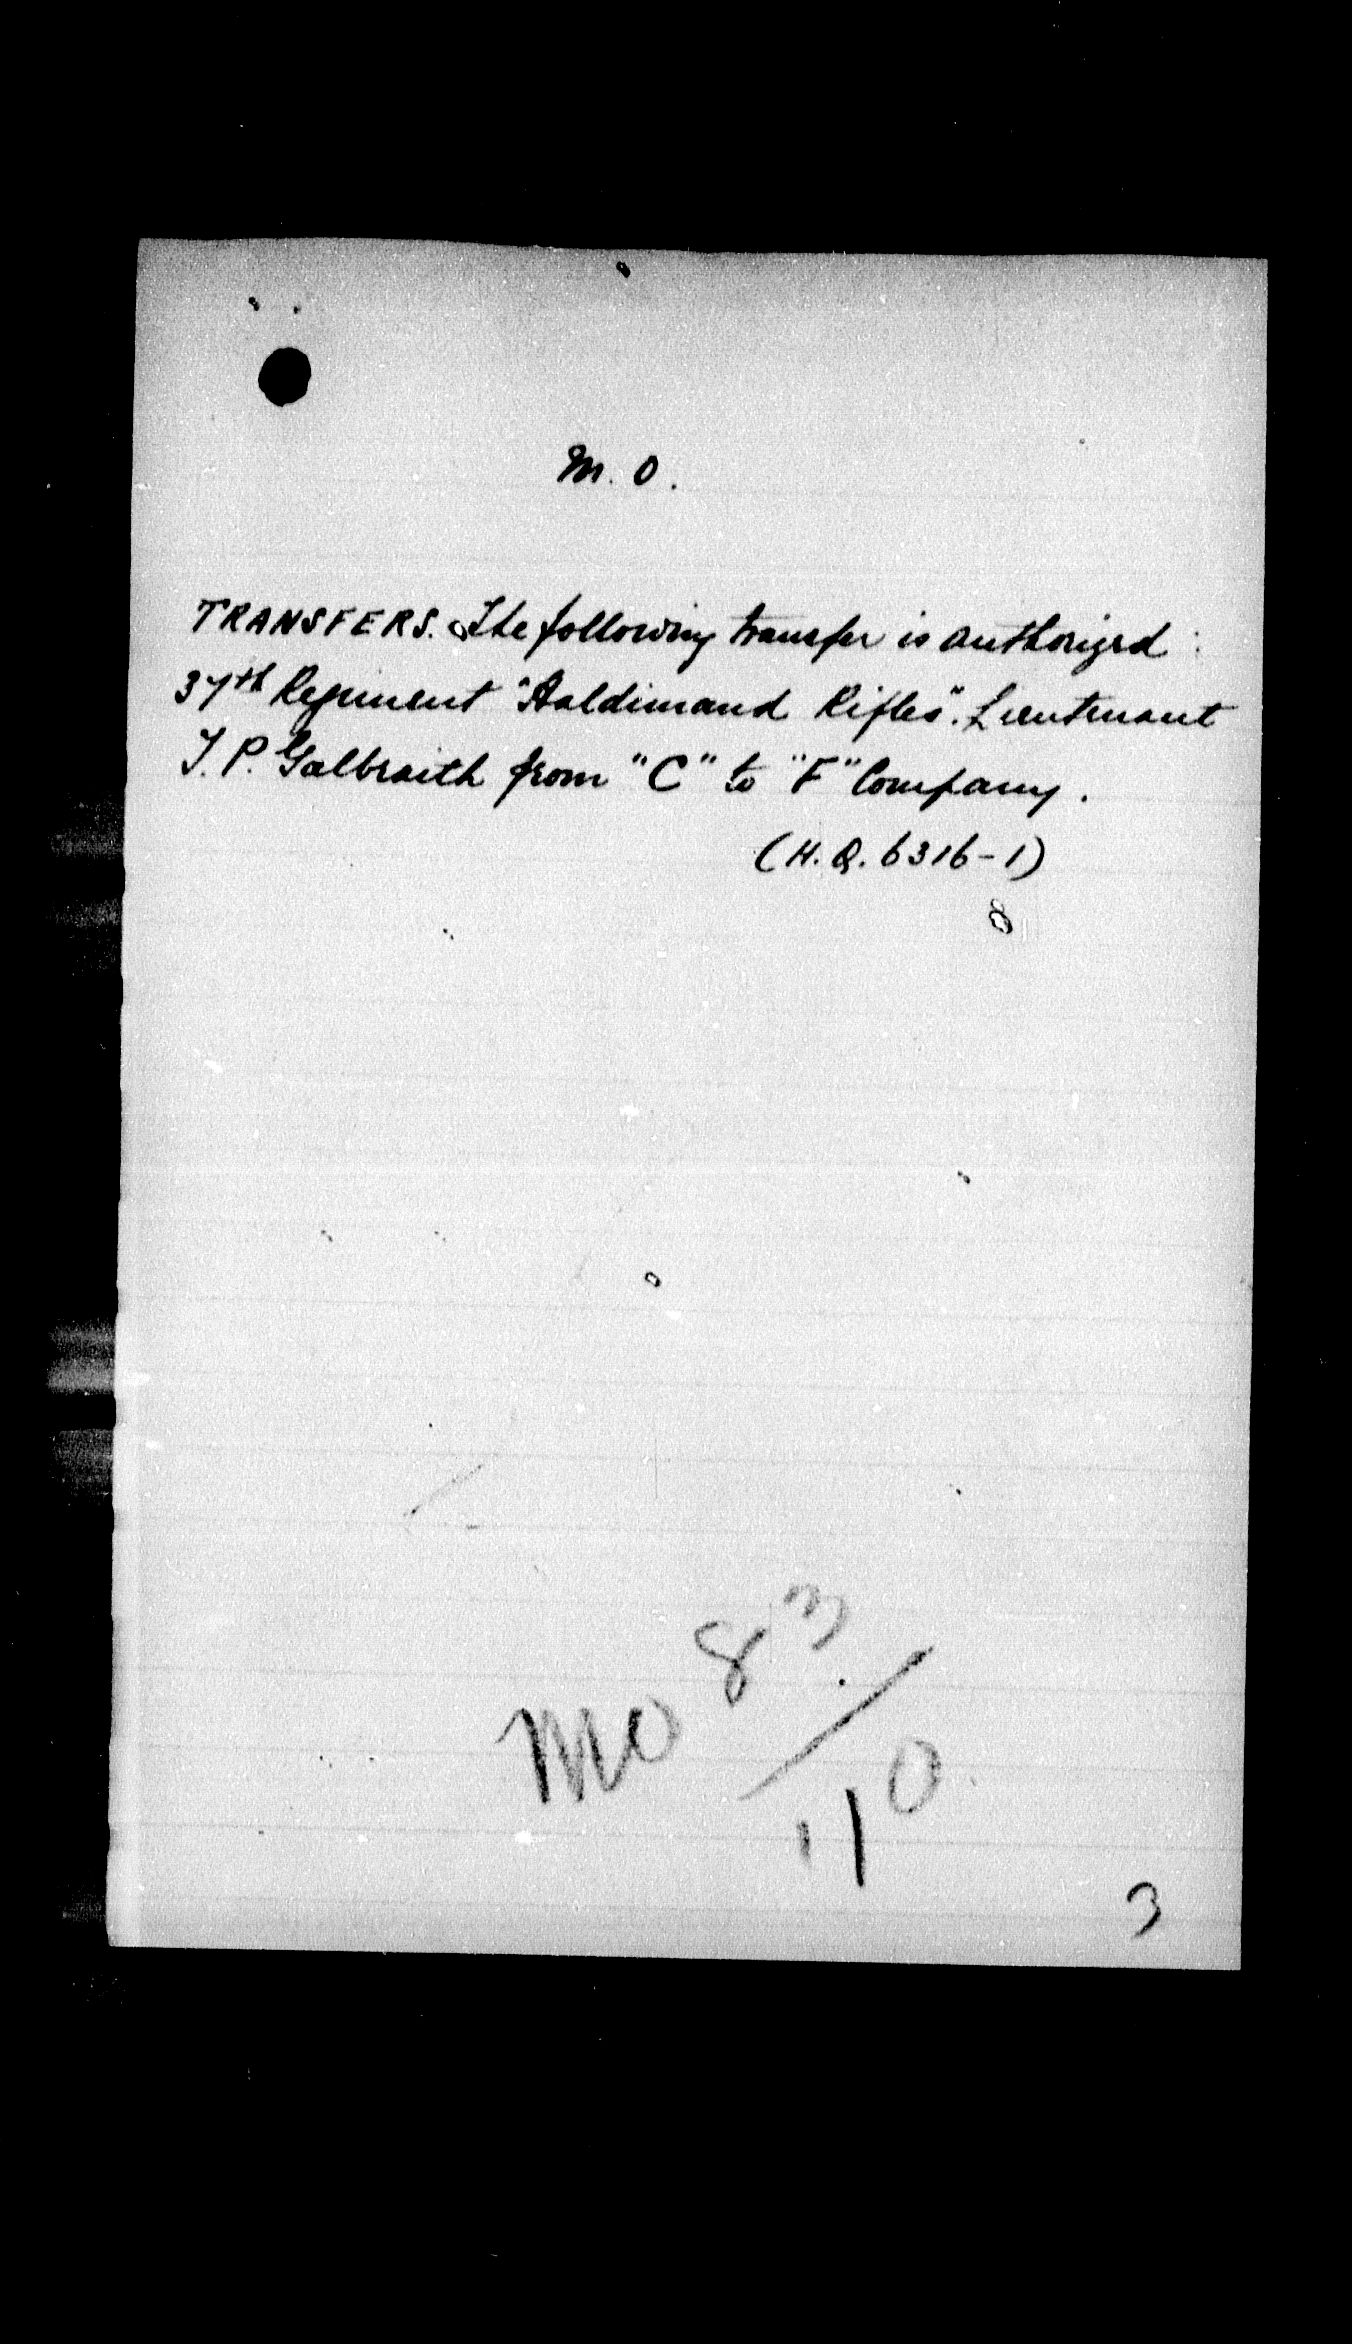 M. O.
TRANSFERS. The following transfer is authorized:
37th Regiment "Haldimand Rifles". Lieutenant
T. P. Galbraith from "C" to "F" Company.
(H. Q. 6316-1)
MO 83/110
3